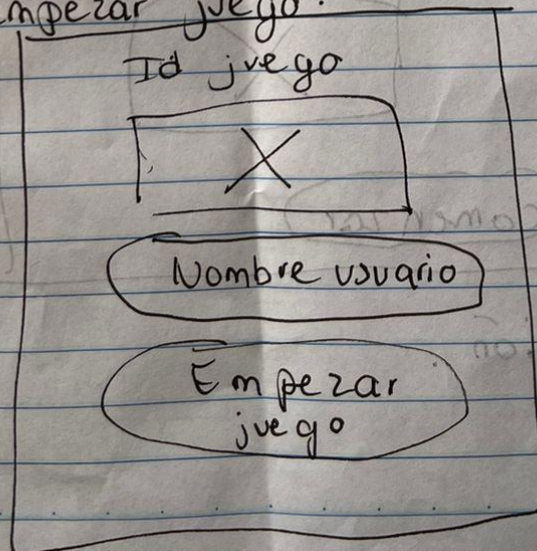 mpezar juego.
Id juego
X
Nombre usuario
Empezar
juego